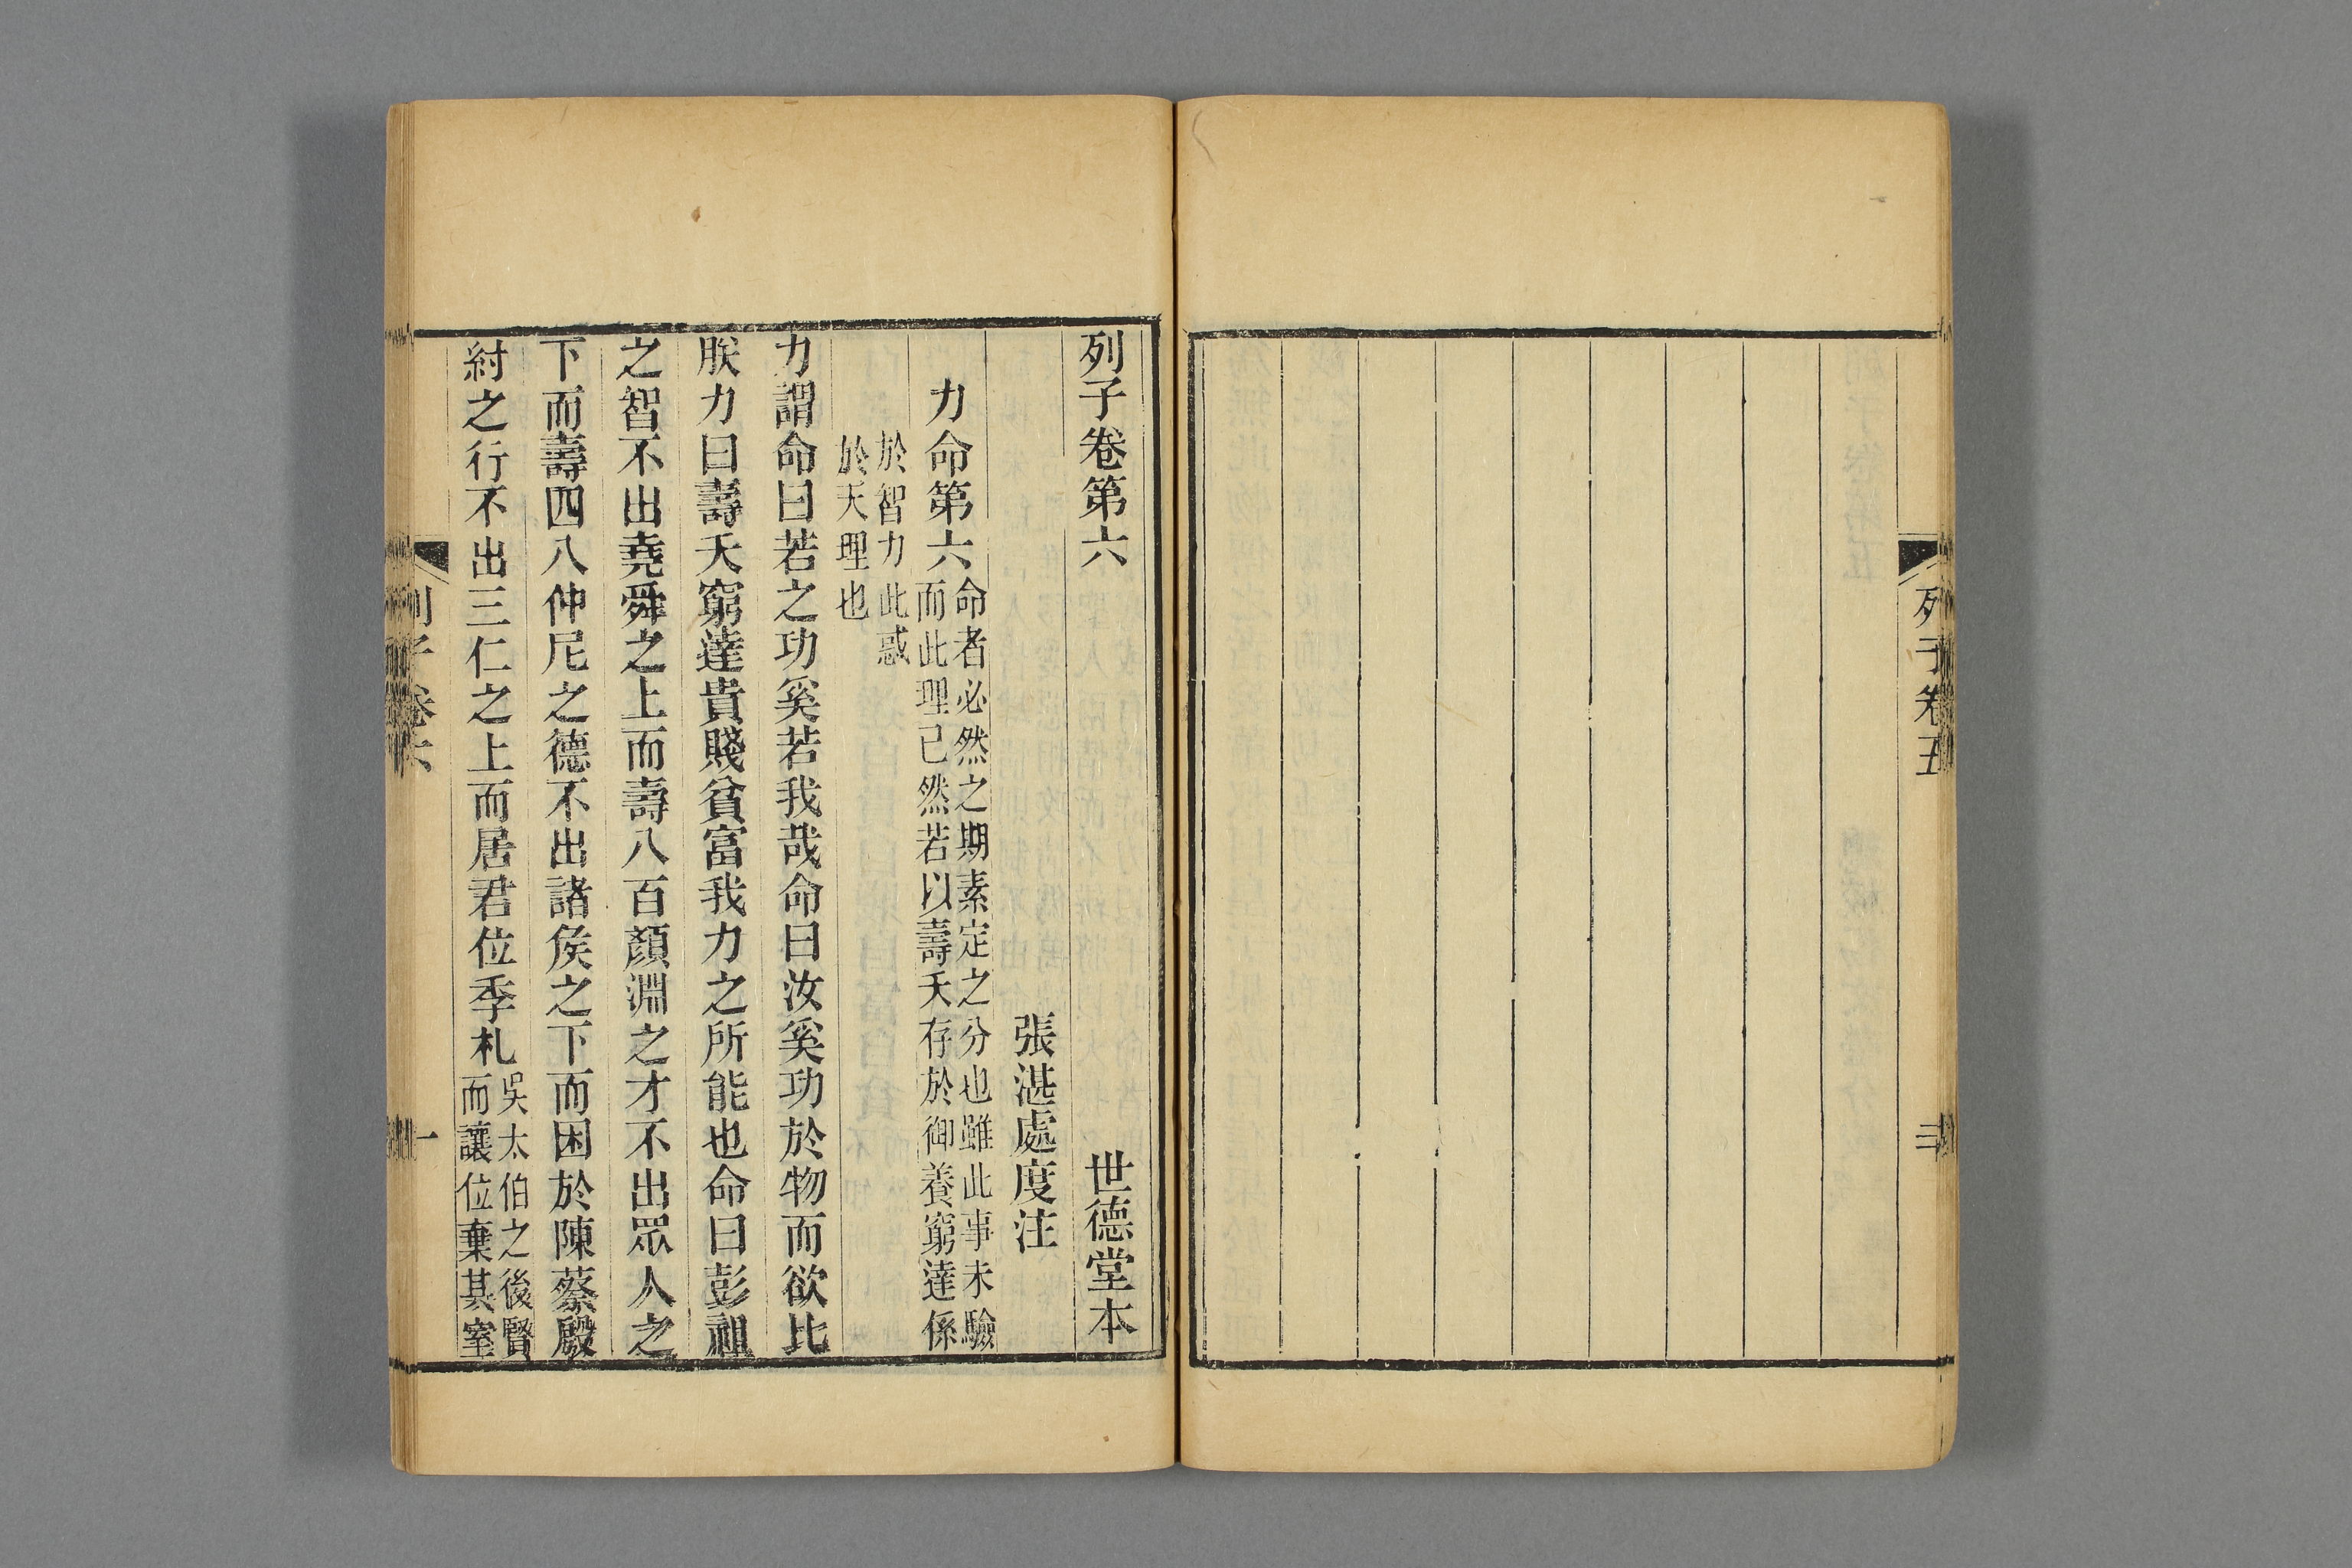 列子卷五
二
列子卷第六
世德堂本
張湛處度注
力命第六
命者必然之期素定之分也雖此事未驗
而此理已然若以壽夭存於御養窮達係
於智力此惑
於天理也
力謂命曰若之功奚若我哉命曰汝奚功於物而欲比
朕力曰壽夭窮達貴賤貧富我力之所能也命曰彭祖
之智不出堯舜之上而壽八百顏淵之才不出眾人之
下而壽四八仲尼之德不出諸侯之下而困於陳蔡殷
紂之行不出三仁之上而居君位季札
吳太伯之後賢
而讓位棄其室
列子卷六
一